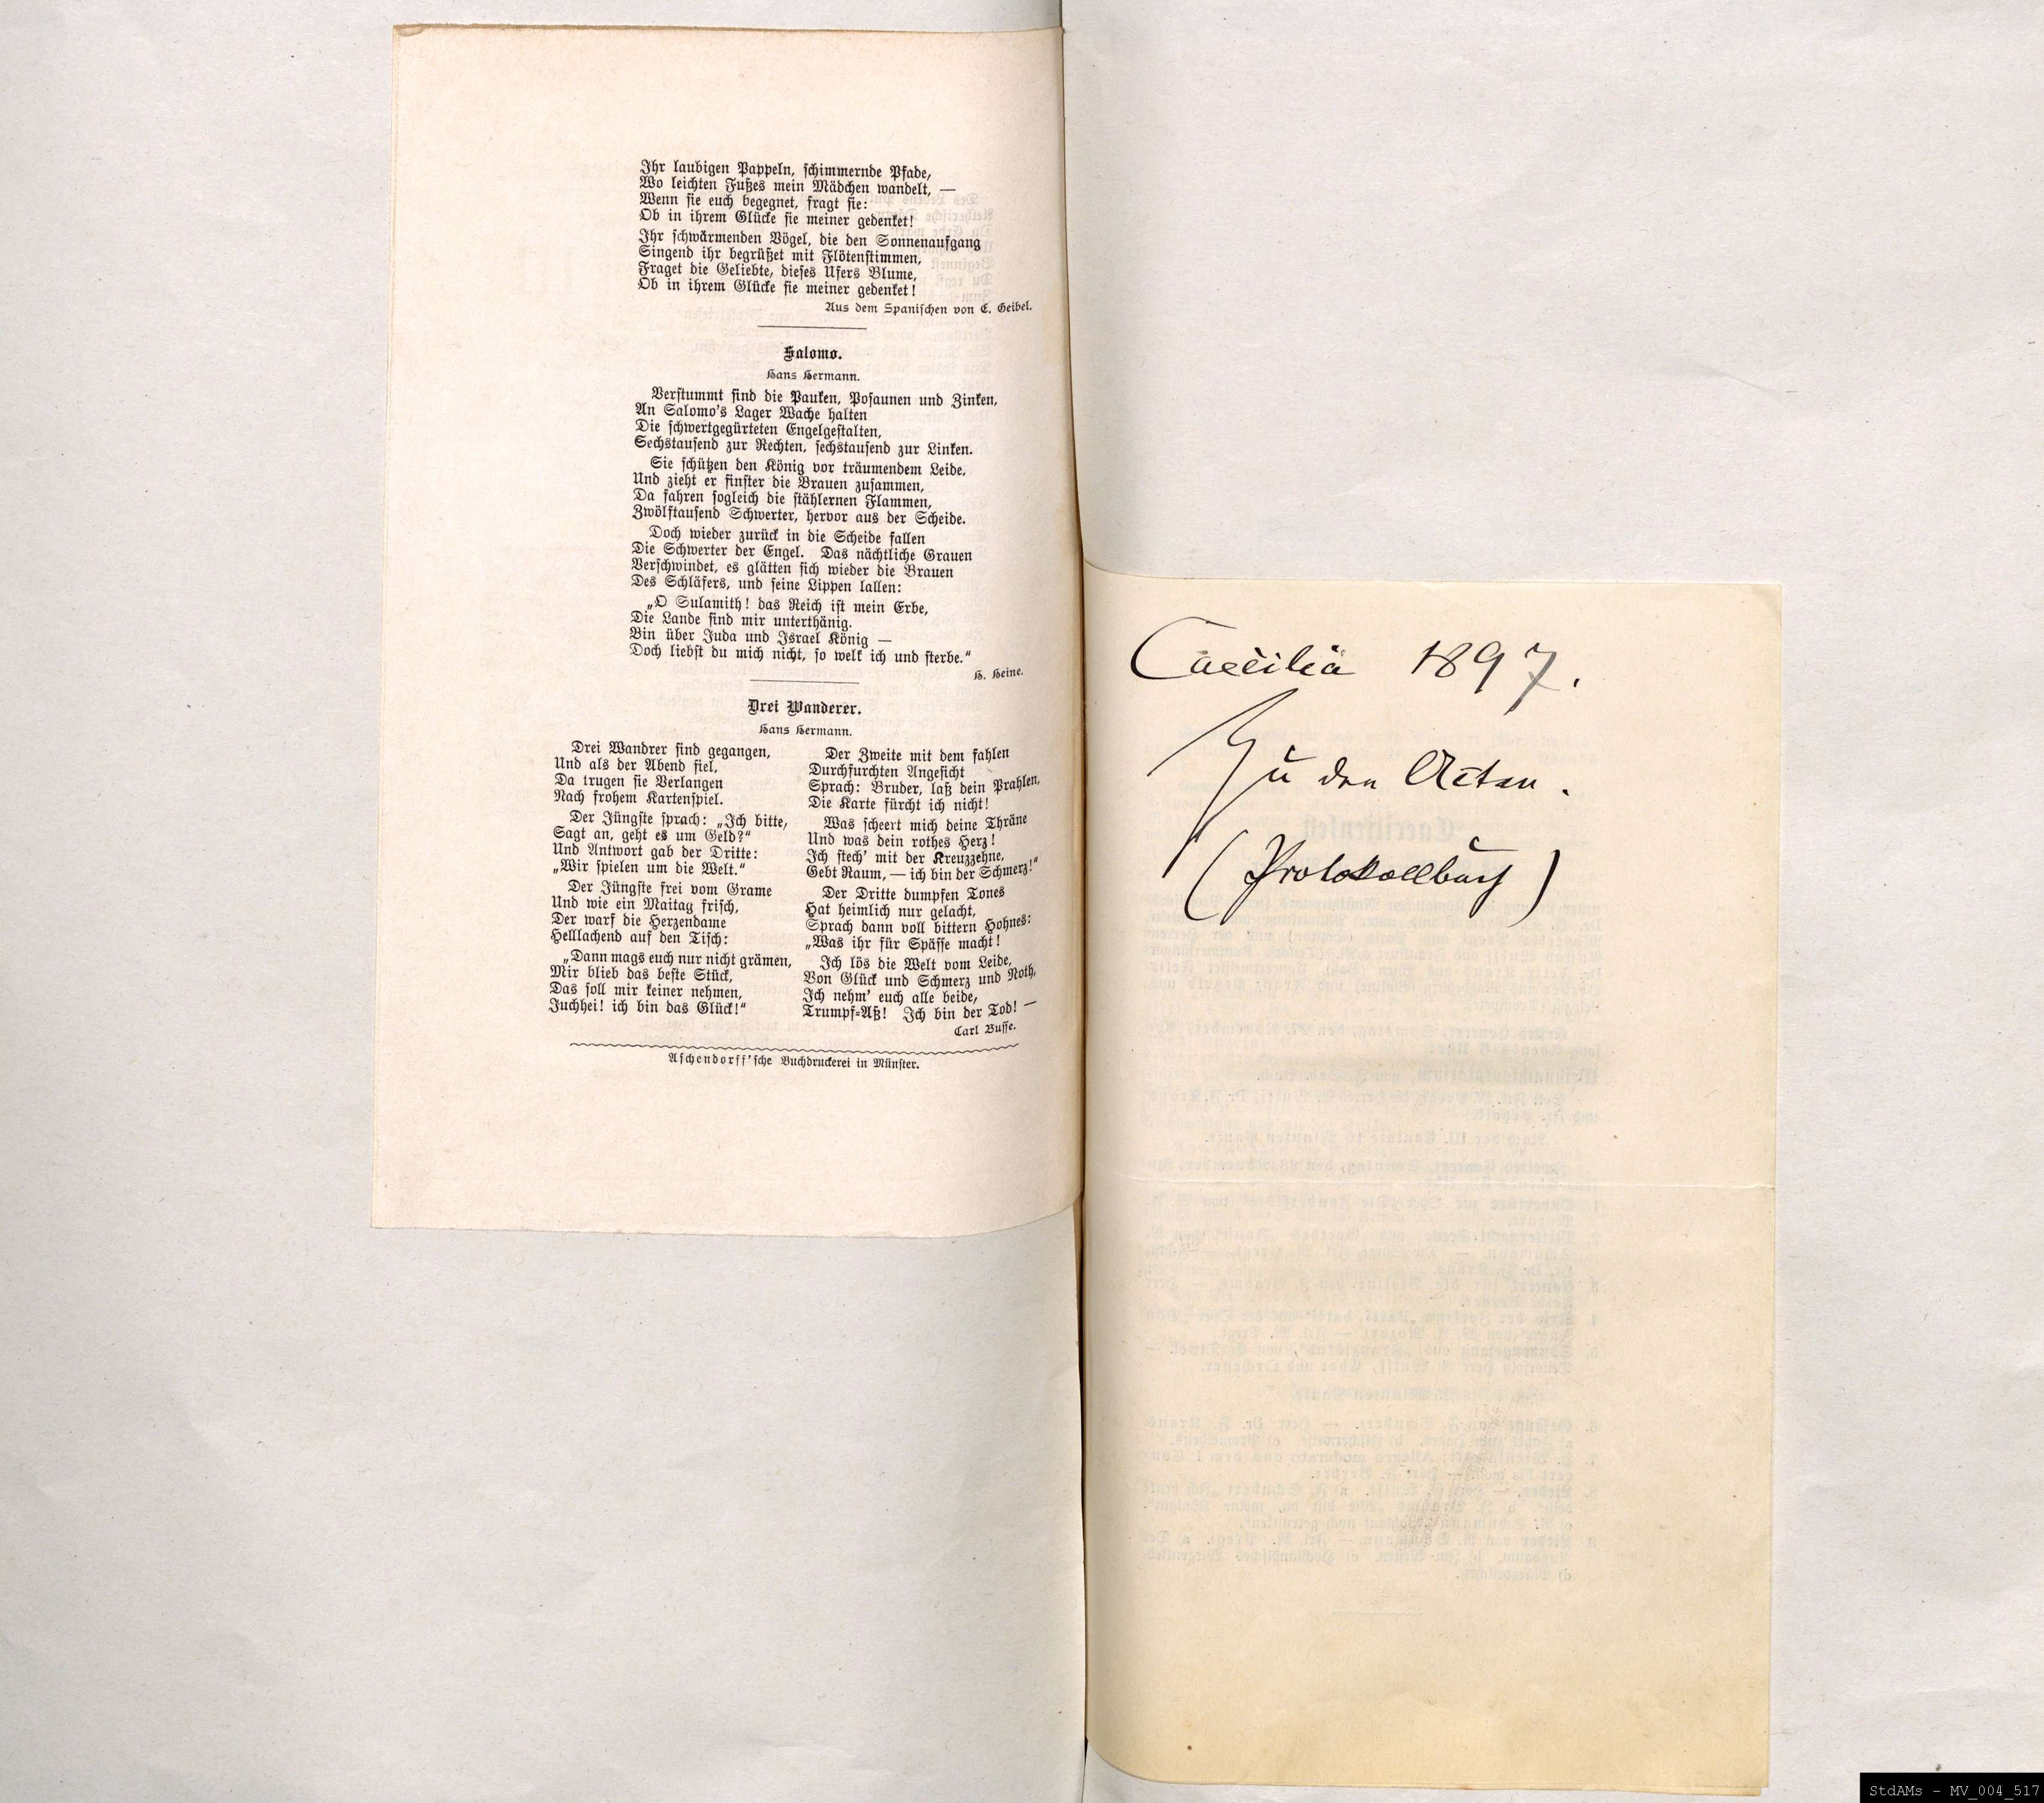 Ihr laubigen Pappeln, schimmernde Pfade,
Wo leichten Fußes mein Mädchen wandelt, —
Wenn sie euch begegnet, fragt sie:
Ob in ihrem Glücke sie meiner gedenket!
Ihr schwärmenden Vögel, die den Sonnenaufgang
Singend ihr begrüßet mit Flötenstimmen,
Fraget die Geliebte, dieses Ufers Blume,
Ob in ihrem Glücke sie meiner gedenket!
Aus dem Spanischen von E. Geibel.
Salomo.
Hans Hermann.
Verstummt sind die Pauken, Posaunen und Zinken,
An Salomo's Lager Wache halten
Die schwertgegürteten Engelgestalten,
Sechstausend zur Rechten, sechstausend zur Linken.
Sie schützen den König vor träumendem Leide,
Und zieht er finster die Brauen zusammen,
Da fahren sogleich die stählernen Flammen,
Zwölftausend Schwerter, hervor aus der Scheide.
Doch wieder zurück in die Scheide fallen
Die Schwerter der Engel. Das nächtliche Grauen
Verschwindet, es glätten sich wieder die Brauen
Des Schläfers, und seine Lippen lallen:
„O Sulamith! das Reich ist mein Erbe,
Die Lande sind mir unterthänig.
Bin über Juda und Israel König —
Doch liebst du mich nicht, so welk ich und sterbe.“
H. Heine.
Drei Wanderer.
Hans Hermann.
Drei Wandrer sind gegangen,
Und als der Abend fiel,
Da trugen sie Verlangen
Nach frohem Kartenspiel.
Der Jüngste sprach: „Ich bitte,
Sagt an, geht es um Geld?“
Und Antwort gab der Dritte:
„Wir spielen um die Welt.“
Der Jüngste frei vom Grame
Und wie ein Maitag frisch,
Der warf die Herzendame
Helllachend auf den Tisch:
„Dann mags euch nur nicht grämen,
Mir blieb das beste Stück,
Das soll mir keiner nehmen,
Juchhei! ich bin das Glück!“
Der Zweite mit dem fahlen
Durchfurchten Angesicht
Sprach: Bruder, laß dein Prahlen,
Die Karte fürcht ich nicht!
Was scheert mich deine Thräne
Und was dein rothes Herz!
Ich stech' mit der Kreuzzehne,
Gebt Raum, — ich bin der Schmerz!“
Der Dritte dumpfen Tones
Hat heimlich nur gelacht,
Sprach dann voll bittern Hohnes:
„Was ihr für Spässe macht!
Ich lös die Welt vom Leide,
Von Glück und Schmerz und Noth,
Ich nehm' euch alle beide,
Trumpf-Aß! Ich bin der Tod! —
Carl Busse.
Aschendorff'sche Buchdruckerei in Münster.
Caecilia 1897.
Zu den Acten.
(Protokollbuch)
StdAMs - MV_004_517